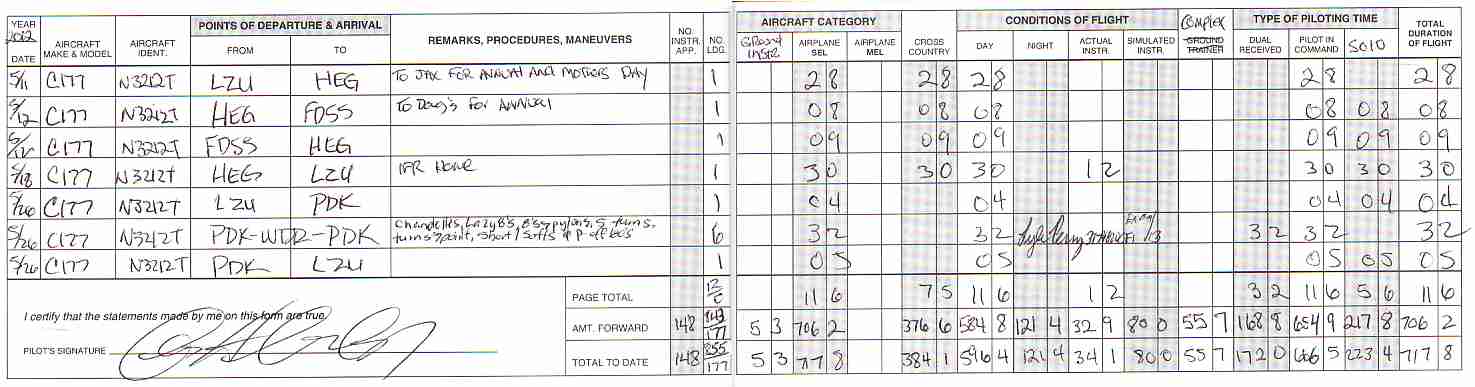 YEAR 2012 POINTS OF DEPARTURE & ARRIVAL NO. INSTR. APP. NO. LDG. AIRCRAFT CATEGORY CONDITIONS OF FLIGHT COMPLEX TYPE OF PILOTING TIME TOTAL DURATION OF FLIGHT
DATE AIRCRAFT MAKE & MODEL AIRCRAFT IDENT. FROM TO REMARKS, PROCEDURES, MANEUVERS GROUND INSTR AIRPLANE SEL AIRPLANE MEL CROSS COUNTRY DAY NIGHT ACTUAL INSTR. SIMULATED INSTR. GROUND TRAINER DUAL RECEIVED PILOT IN COMMAND SOLO
5/11 C177 N3212T LZU HEG TO JAX FOR ANNUAL AND MOTHERS DAY 1 2 8 2 8 2 8 2 8 2 8
5/12 C177 N3212T HEG FDSS TO Doug's FOR ANNUAL 1 0 8 0 8 0 8 0 8 0 8 0 8
5/12 C177 N3212T FDSS HEG 1 0 9 0 9 0 9 0 9 0 9 0 9
5/18 C177 N3212T HEG LZU IFR HOME 1 3 0 3 0 3 0 1 2 3 0 3 0 3 0
5/26 C177 N3212T LZU PDK 1 0 4 0 4 0 4 0 4 0 4
5/26 C177 N3212T PDK-WDR-PDK Chandelles, Lazy 8's, 8's pylons, S turns, turns point, short/softs 6 3 2 3 2 3 2 3 2 3 2
5/26 C177 N3212T PDK LZU 1 0 5 0 5 0 5 0 5 0 5
PAGE TOTAL 12/0 11 6 7 5 11 6 1 2 3 2 11 6 5 6 11 6
I certify that the statements made by me on this form are true. AMT. FORWARD 148 843/177 5 3 706 2 376 6 584 8 121 4 32 9 80 0 55 7 168 8 654 9 217 8 706 2
PILOT'S SIGNATURE TOTAL TO DATE 148 855/177 5 3 717 8 384 1 596 4 121 4 34 1 80 0 55 7 172 0 666 5 223 4 717 8